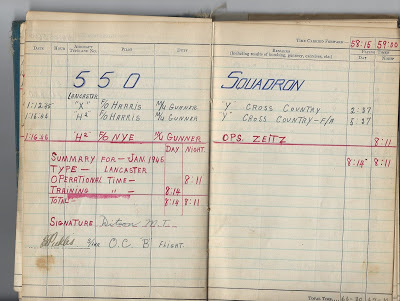 TIME CARRIED FORWARD:— 58:15 59:00
DATE HOUR AIRCRAFT TYPE AND NO. PILOT DUTY REMARKS FLYING TIMES
(Including results of bombing, gunnery, exercises, etc.) DAY NIGHT
550 SQUADRON
LANCASTER
"X" F/O HARRIS M/U GUNNER "Y" CROSS COUNTRY 2:37
H² F/O HARRIS M/U GUNNER "Y" CROSS COUNTRY – F/A 5:37
H² F/O NYE M/U GUNNER OPS. ZEITZ 8:11
DAY NIGHT.
SUMMARY FOR — JAN 1945 8:14 8:11
TYPE — LANCASTER
OPERATIONAL TIME — 8:11
TRAINING " — 8:14
TOTAL — 8:14 8:11
SIGNATURE
O.C. B' FLIGHT.
TOTAL TIME